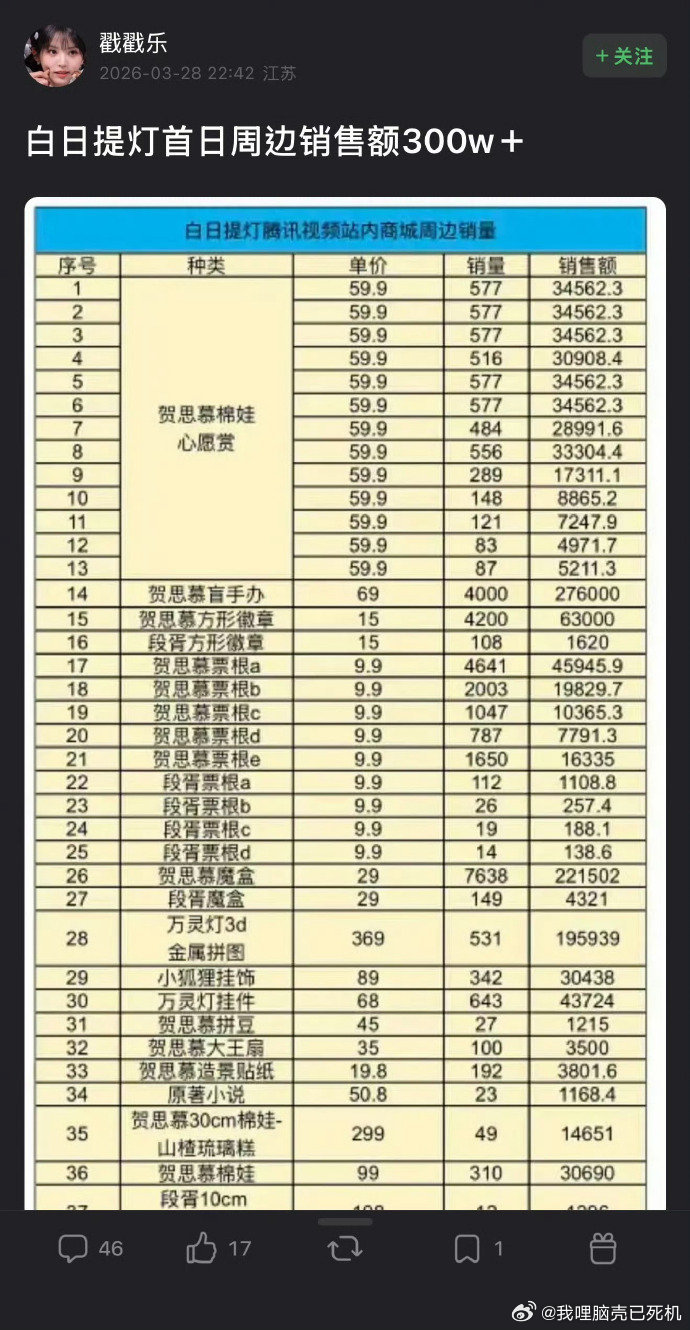 戳戳乐
2026-03-28 22:42 江苏
+关注
白日提灯首日周边销售额300w＋
白日提灯腾讯视频站内商城周边销量
序号 种类 单价 销量 销售额
1 59.9 577 34562.3
2 59.9 577 34562.3
3 59.9 577 34562.3
4 59.9 516 30908.4
5 59.9 577 34562.3
6 59.9 577 34562.3
贺思慕棉娃
心愿赏
7 59.9 484 28991.6
8 59.9 556 33304.4
9 59.9 289 17311.1
10 59.9 148 8865.2
11 59.9 121 7247.9
12 59.9 83 4971.7
13 59.9 87 5211.3
14 贺思慕盲手办 69 4000 276000
15 贺思慕方形徽章 15 4200 63000
16 段胥方形徽章 15 108 1620
17 贺思慕票根a 9.9 4641 45945.9
18 贺思慕票根b 9.9 2003 19829.7
19 贺思慕票根c 9.9 1047 10365.3
20 贺思慕票根d 9.9 787 7791.3
21 贺思慕票根e 9.9 1650 16335
22 段胥票根a 9.9 112 1108.8
23 段胥票根b 9.9 26 257.4
24 段胥票根c 9.9 19 188.1
25 段胥票根d 9.9 14 138.6
26 贺思慕魔盒 29 7638 221502
27 段胥魔盒 29 149 4321
28 万灵灯3d
金属拼图 369 531 195939
29 小狐狸挂饰 89 342 30438
30 万灵灯挂件 68 643 43724
31 贺思慕拼豆 45 27 1215
32 贺思慕大王扇 35 100 3500
33 贺思慕造景贴纸 19.8 192 3801.6
34 原著小说 50.8 23 1168.4
35 贺思慕30cm棉娃-
山楂琉璃糕 299 49 14651
36 贺思慕棉娃 99 310 30690
段胥10cm
46 17 1
@我哩脑壳已死机